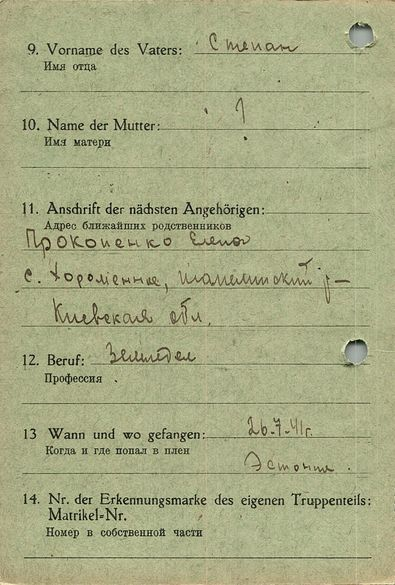 9. Vorname des Vaters: Степан
Имя отца
10. Name der Mutter:
Имя матери
11. Anschrift der nächsten Angehörigen:
Адрес ближайших родственников
Прокопенко Елена
с.
Киевская обл.
12. Beruf: Земледел
Профессия
13 Wann und wo gefangen: 26-7-41г.
Когда и где попал в плен
Эстония.
14. Nr. der Erkennungsmarke des eigenen Truppenteils:
Matrikel=Nr.
Номер в собственной части